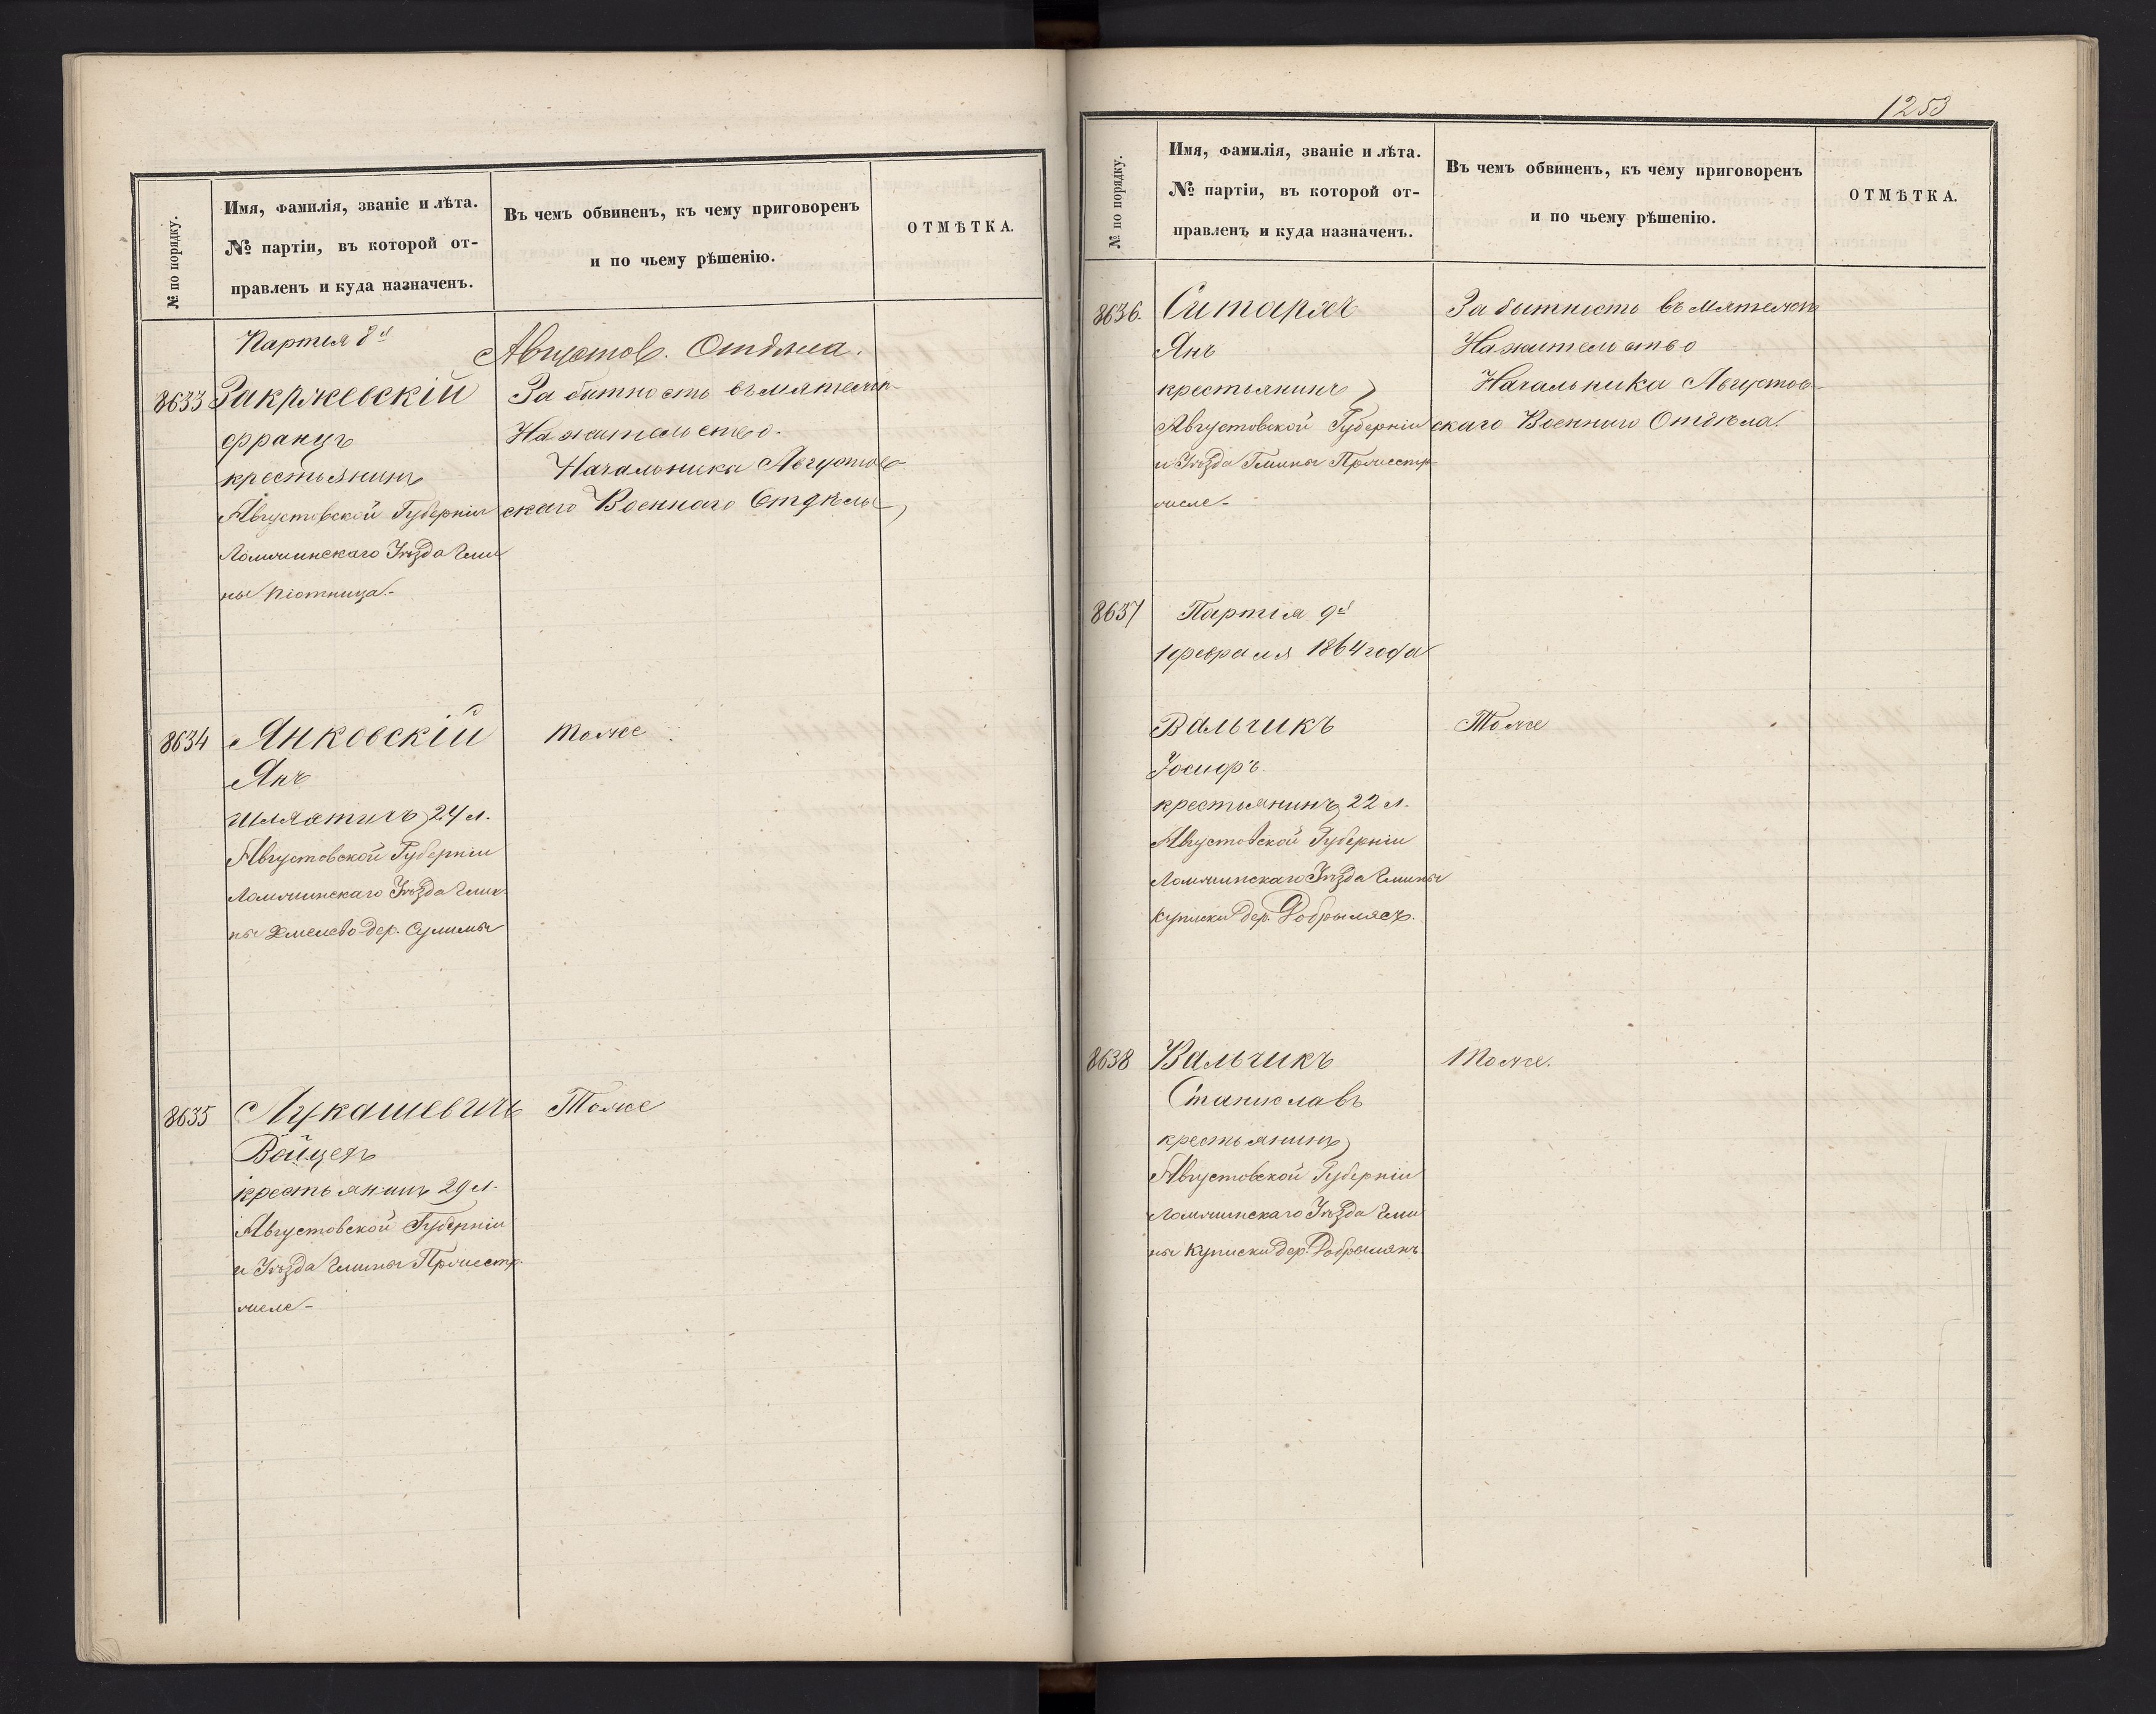 № по порядку.
Имя, фамилія, званіе и лѣта.
№ партіи, въ которой от-
правленъ и куда назначенъ.
Въ чемъ обвиненъ, къ чему приговоренъ
и по чьему рѣшенію.
ОТМѢТКА.
Партія 8я
Августов. Отдѣла.
8633
Закржевскій
Францъ
крестьянинъ
Августовской Губерніи
Ломжинскаго Уѣзда Гми
ны Піотница.-
За бытность въ мятежѣ-
На жительство.
Начальника Августов-
скаго Военнаго Отдѣла
8634
Янковскій
Янъ
шляхтичъ 24 л.
Августовской Губерніи
Ломжинскаго Уѣзда Гми-
ны Хмелево дер. Сулимы
тоже
8635
Лукашевичъ
Войцехъ
крестьянинъ 29 л.
Августовской Губерніи
и Уѣзда Гмины
Тоже
1253
№ по порядку.
Имя, фамилія, званіе и лѣта.
№ партіи, въ которой от-
правленъ и куда назначенъ.
Въ чемъ обвиненъ, къ чему приговоренъ
и по чьему рѣшенію.
ОТМѢТКА.
8636.
Ситаржъ
Янъ
крестьянинъ
Августовской Губерніи
и Уѣзда Гмины
За бытность въ мятежѣ
На жительство
Начальника Августов-
скаго Военнаго Отдѣла.
8637
Партія 9я
1 февраля 1864 года
Вальчикъ
Іосифъ
крестьянинъ 22 л.
Августовской Губерніи
Ломжинскаго Уѣзда Гмины
Куписки дер. Добрылясъ.
Тоже
8638
Вальчикъ
Станиславъ
крестьянинъ
Августовской Губерніи
Ломжинскаго Уѣзда Гми
ны Куписки дер.
Тоже.